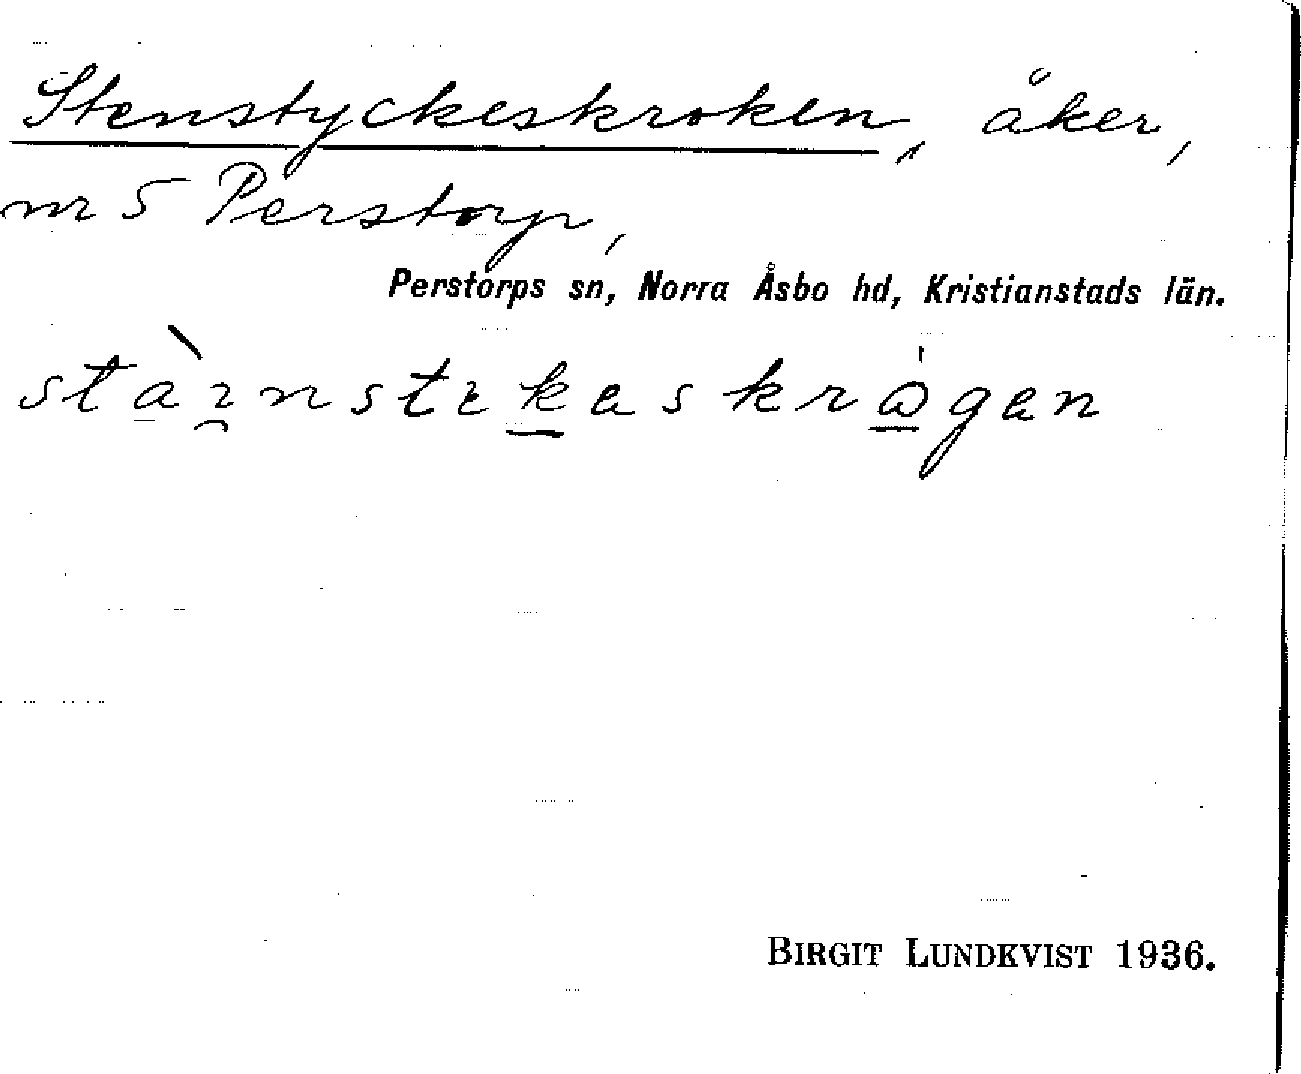 Stenstyckeskroken, åker,
nr 5 Perstorp,
Perstorps sn, Norra Åsbo hd, Kristianstads län.
stàɪ̯nstɪkaskrågan
BIRGIT LUNDKVIST 1936.